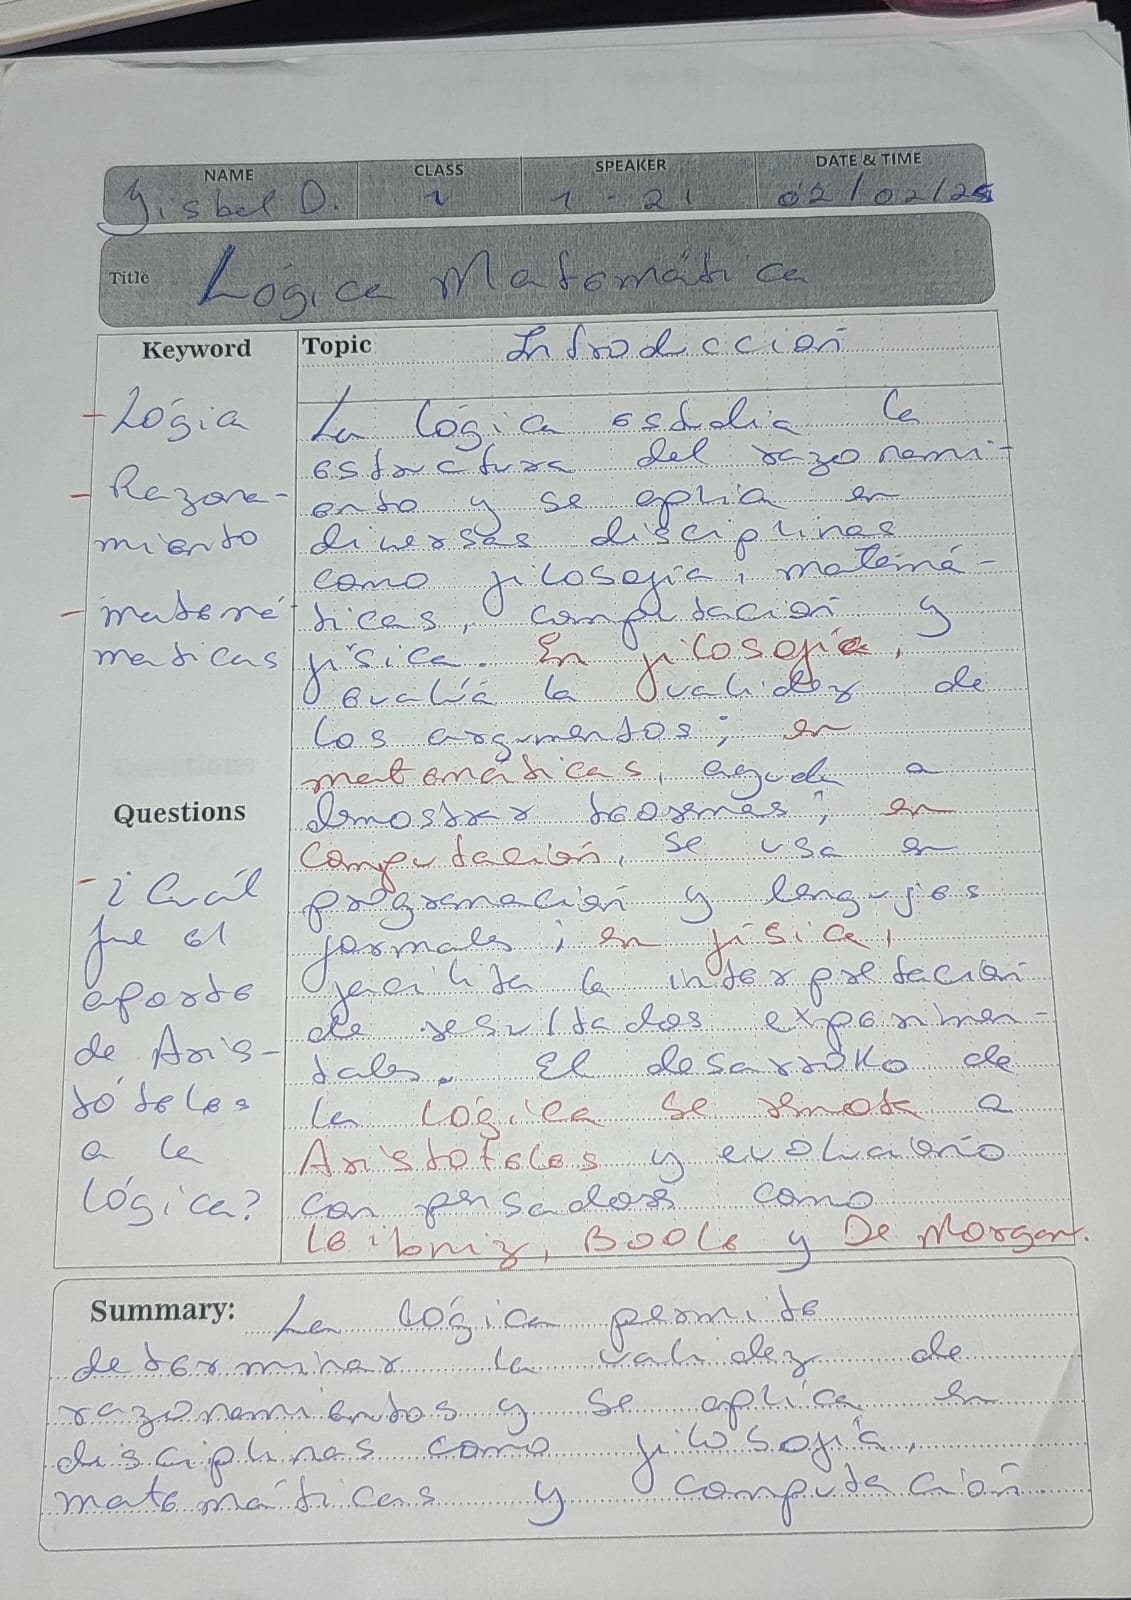 NAME CLASS SPEAKER DATE & TIME
Yisbel D. 1 1-21 02/02/25
Title Lógica Matemática
Keyword
- Lógia
- Razona-
miento
- matemá
maticas
Questions
- ¿Cuál
fue el
aporte
de Aris-
tóteles
a la
lógica?
Topic Introducción
La lógica estudia la
estructura del razonami-
ento y se aplia en
diversas disciplinas
como filosofía, matemá-
ticas, computación y
física. En filosofía,
evalúa la validez de
los argumentos; en
matemáticas, ayuda a
demostrar teoremas; en
computación, se usa en
programación y lenguajes
formales; en física,
facilita la interpretación
de resultados experimen-
tales. El desarrollo de
la lógica se remota a
Aristóteles y evolucionó
con pensadores como
Leibniz, Boole y De Morgan.
Summary: La lógica permite
determinar la validez de
razonamientos y se aplica en
disciplinas como filosofía,
matemáticas y computación.